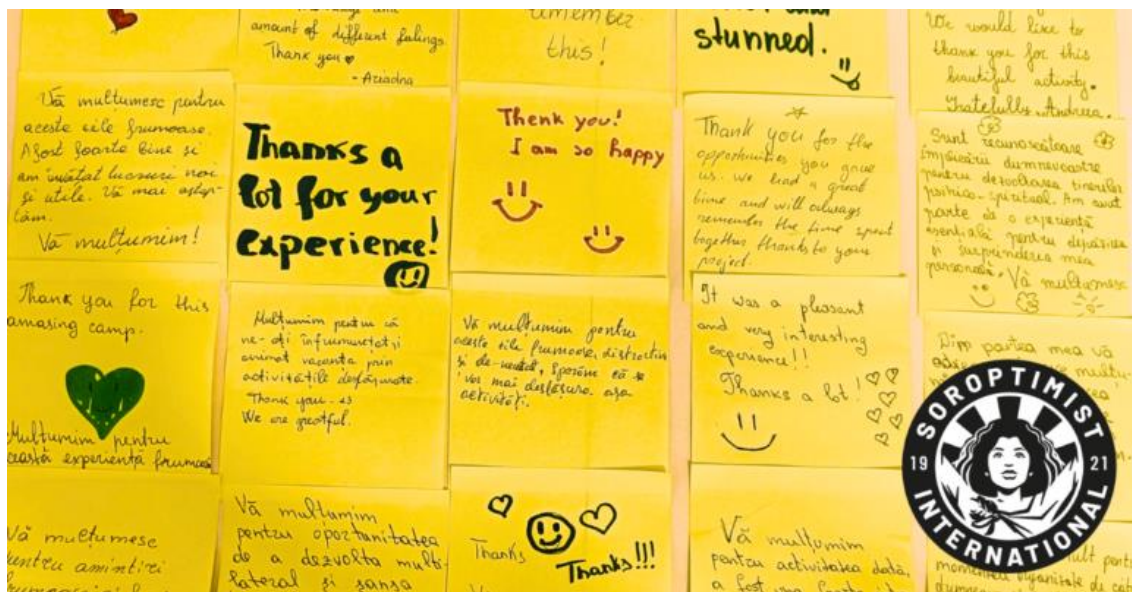 amount of different falings
Thank you
- Ariadna
remember
this!
stunned.
We would like to
thank you for this
beautiful activity.
Gratefully, Andreea.
Vă mulțumesc pentru
aceste zile frumoase.
A fost foarte bine și
am învățat lucruri noi
și utile. Vă mai aștep-
tăm.
Vă mulțumim!
Thanks a
lot for your
experience!
Thenk you!
I am so happy
Thank you for the
opportunities you gave
us. We had a great
time and will always
remember the time spent
together thanks to your
project.
Sunt recunoscătoare
implicării dumnevoastre
pentru dezvoltarea tinerilor
psihico-spiritual. Am avut
parte de o experiență
esențială pentru depășirea
și surprinderea mea
personală. Vă mulțumesc
Thank you for this
amasing camp.
Mulțumim pentru
această experiență frumoasă
Mulțumim pentru că
ne-ați înfrumusețat și
animat vacanța prin
activitățile desfășurate.
Thank you
We are greatful.
Vă mulțumim pentru
aceste zile frumoase, distractive
și de neuitat, sperăm că se
vor mai desfășura așa
activități.
It was a pleasant
and very interesting
experience!!
Thanks a lot!
Din partea mea vă
mulțu-
SOROPTIMIST
19 21
INTERNATIONAL
Vă mulțumesc
pentru amintiri
Vă mulțumim
pentru oportunitatea
de a dezvolta multi-
lateral și șansa
Thanks
Thanks!!!
Vă mulțumim
pentru activitatea dată,
a fost
mult pentr
momentele organizate de căt